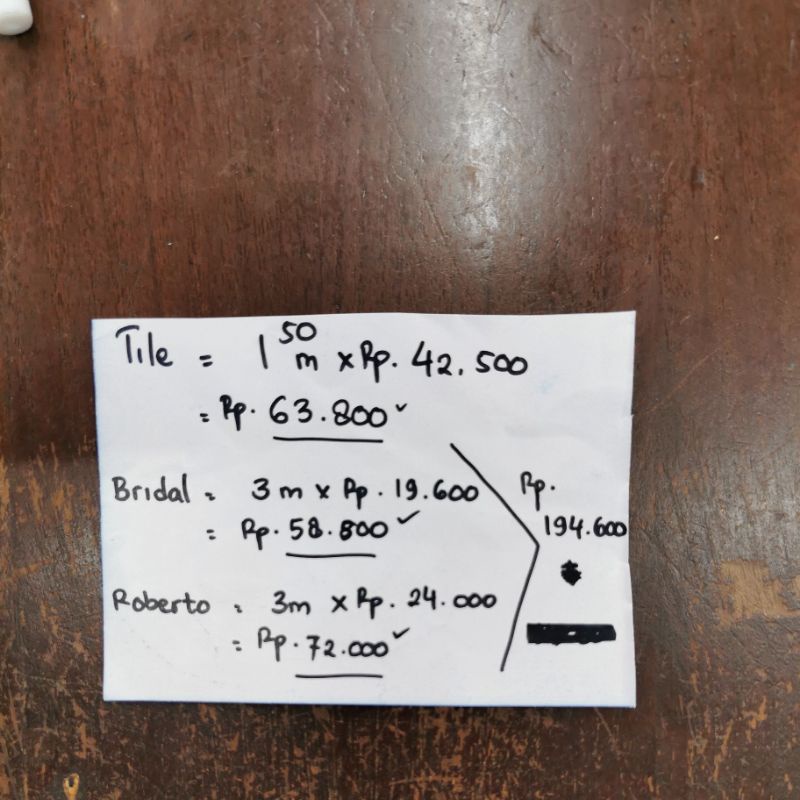 Tile = 1 50 m x Rp. 42.500
= Rp. 63.800
Bridal = 3 m x Rp. 19.600
= Rp. 58.800
Roberto = 3m x Rp. 24.000
= Rp. 72.000
Rp.
194.600